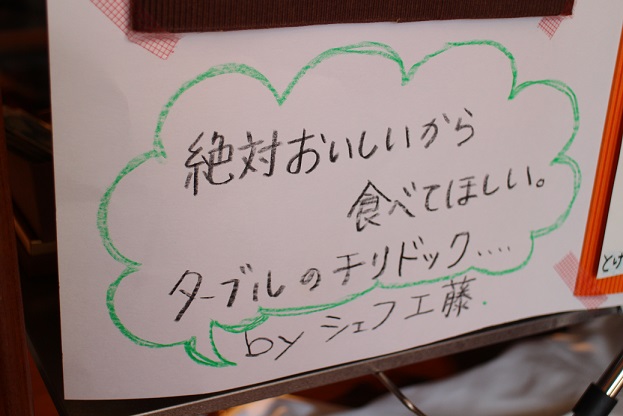 絶対おいしいから
食べてほしい。
ターブルのチリドック.....
by シェフ工藤.
とけ